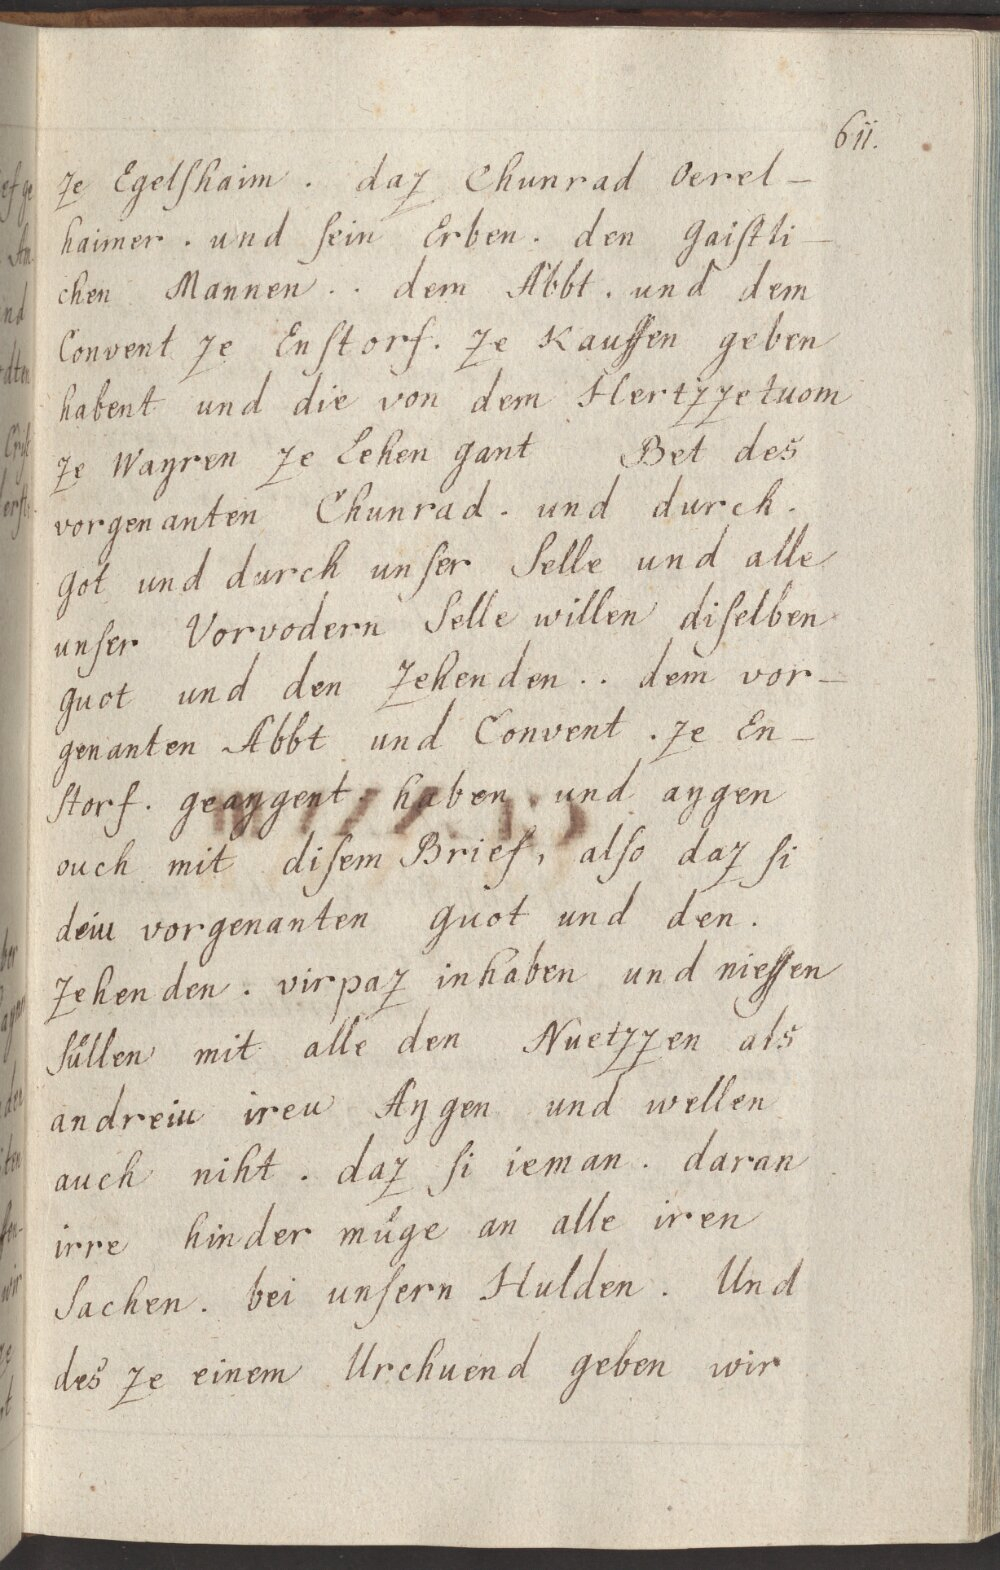 611.
ze Egelſhaim . daz Chunrad Oerel-
haimer . und ſein Erben . den gaiſtli-
chen Mannen . . dem Abbt . und dem
Convent ze Enſtorf . ze Kauffen geben
habent und die von dem Hertzzetuom
ze Wayren ze Lehen gant Bet des
vorgenanten Chunrad . und durch .
got und durch unſer Selle und alle
unſer Vorvodern Selle willen diſelben
guot und den zehenden . . dem vor-
genanten Abbt und Convent . ze En-
ſtorf . geaygent haben und aygen
ouch mit diſem Brief, alſo daz ſi
deiu vorgenanten guot und den .
zehenden . virpaz inhaben und nieſſen
ſüllen mit alle den Nuetzzen als
andreiu ireu Aygen und wellen
auch niht . daz ſi ieman . daran
irre hinder müge an alle iren
Sachen . bei unſern Hulden . Und
des ze einem Urchuend geben wir